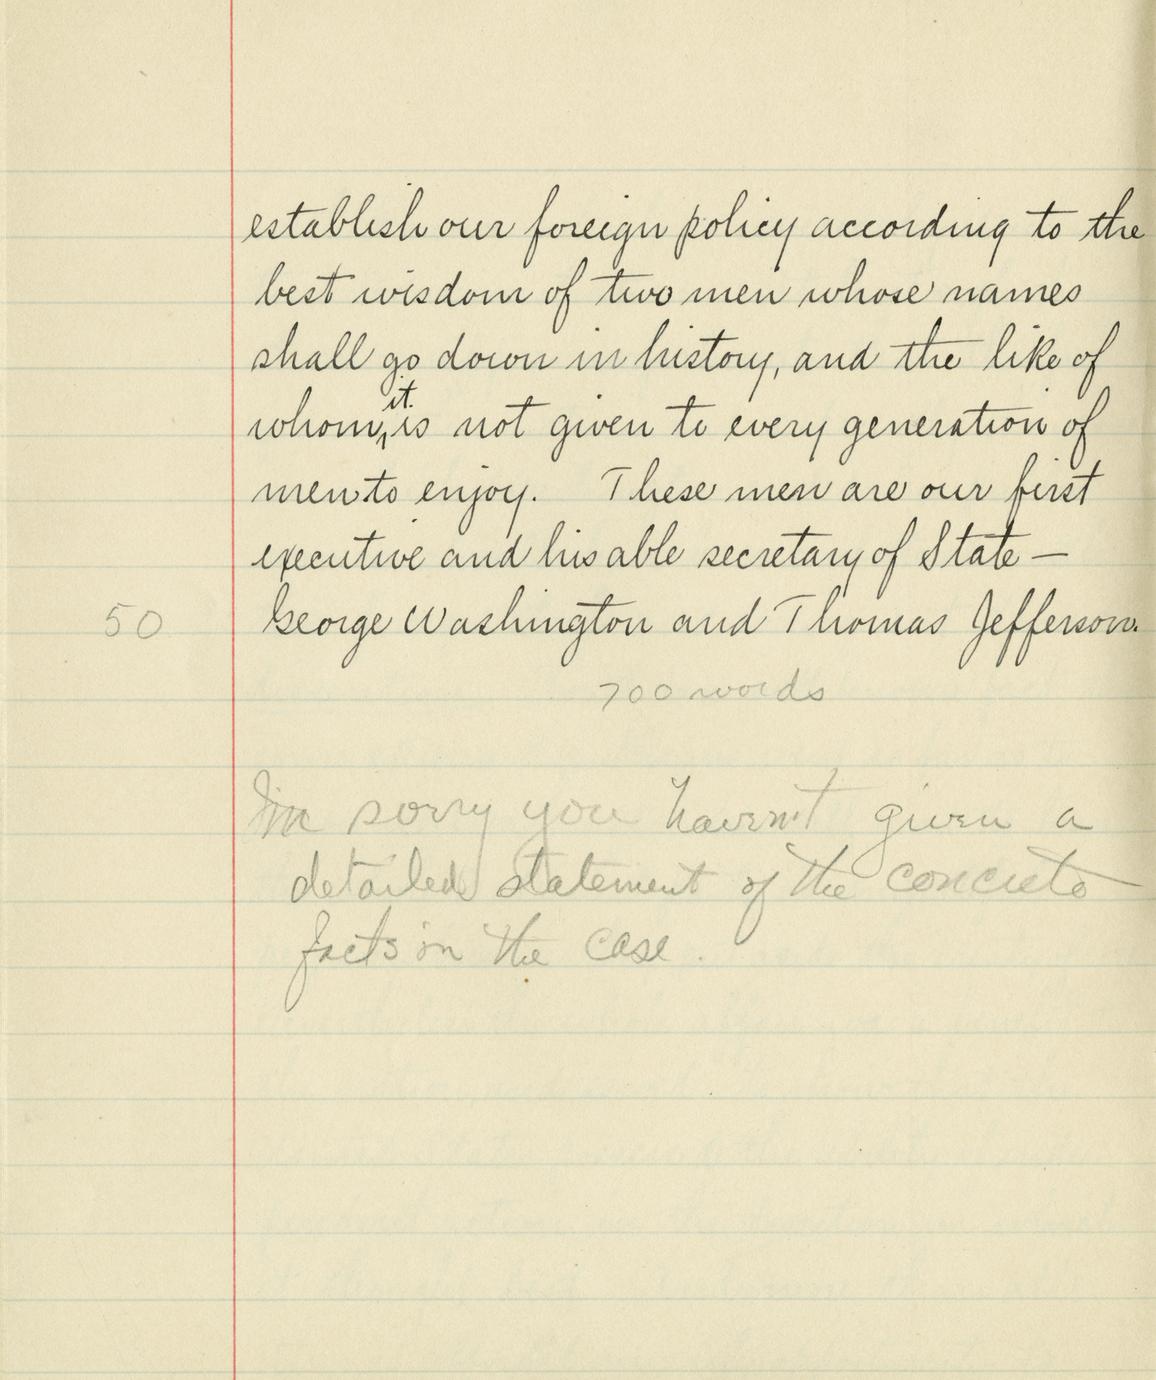 establish our foreign policy according to the
best wisdom of two men whose names
shall go down in history, and the like of
it
whom, is not given to every generation of
men to enjoy. These men are our first
executive and his able secretary of State —
50 George Washington and Thomas Jefferson.
700 words
I'm sorry you haven't given a
detailed statement of the concrete
facts in the case.